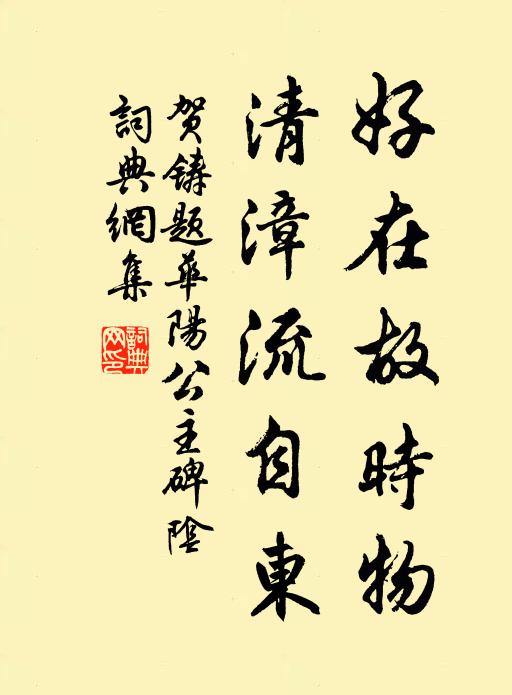 好在故時物
清漳流自東
賀鑄題華陽公主碑陰
詞典網集
詞典
网印